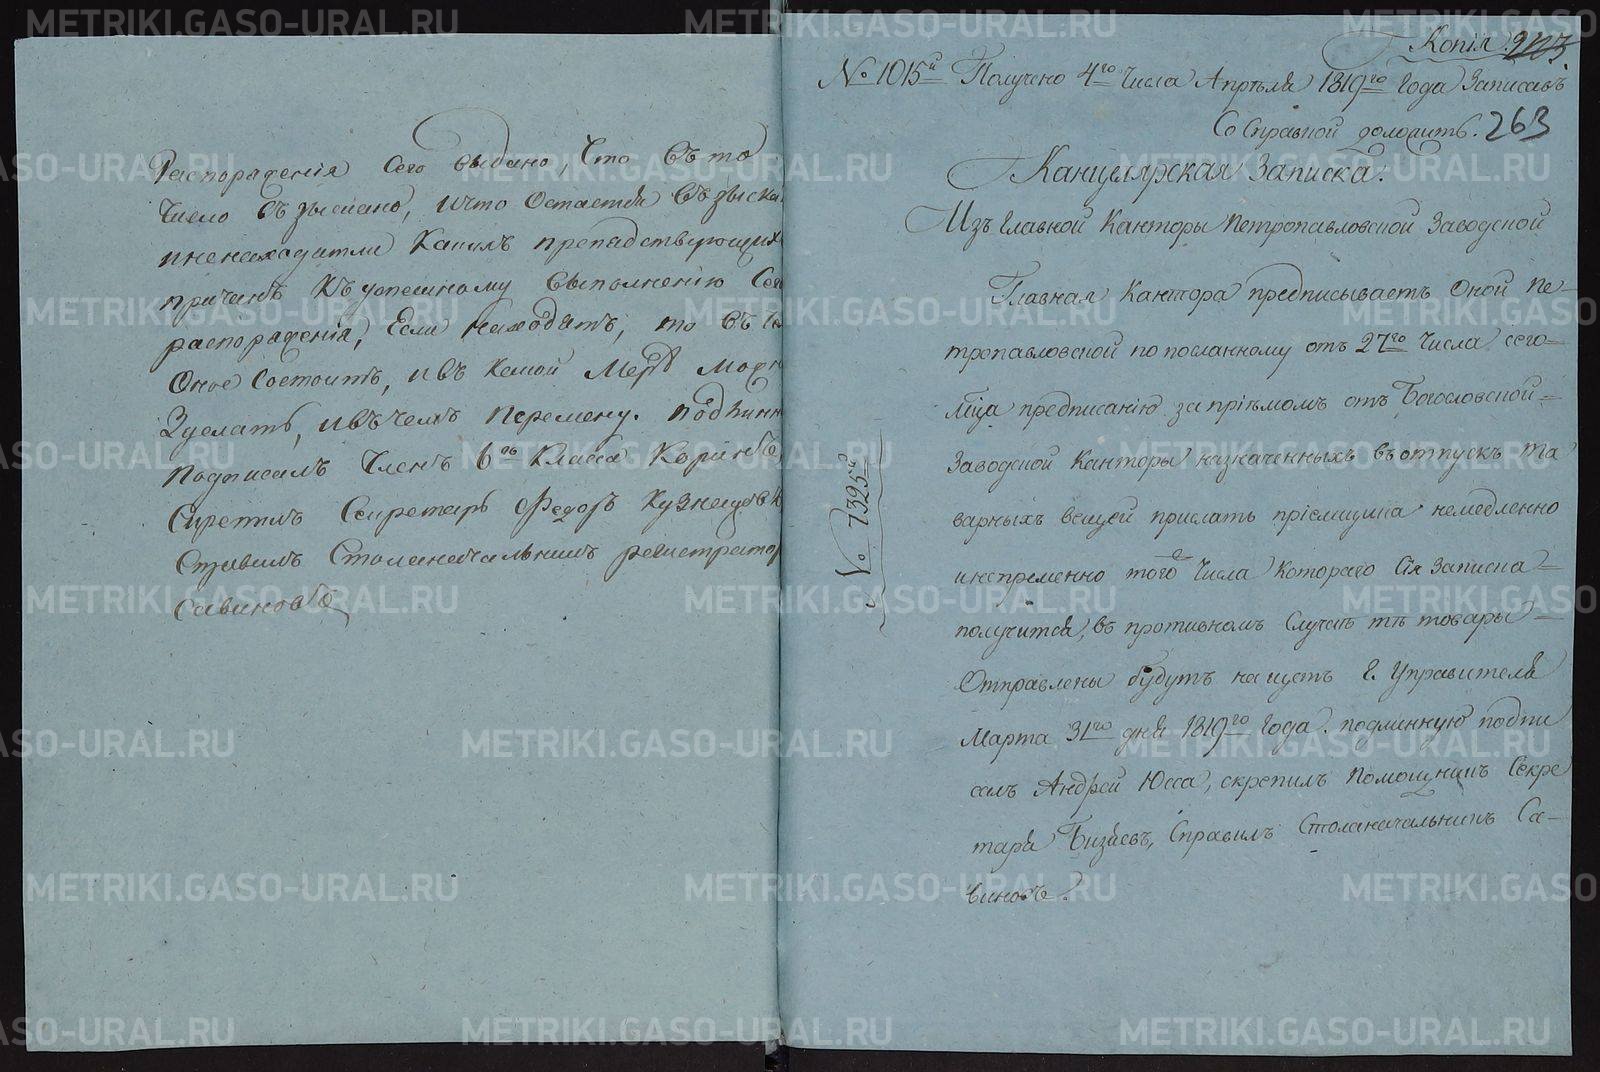 Распоряженія сего выдано, что въ то
число взыскано, и что остается взыска
и ненаходитли какихъ препядствующихъ
причинъ къ успешному выполненію сего
распоряженія, Если находитъ, то въ
Оное состоитъ, и въ какой мере можн
Зделать, и въ чемъ перемену. подлинн
подписалъ Членъ 6го класса
Скрепилъ Секретарь Федоръ Кузнецовъ
Справилъ Столаначальникъ регистратор
Савиновъ
Копія. 263
№ 1015й Получено 4го Числа Апреля 1819го Года Записавъ
Со Справкой доложить.
Канцелярская Записка.
Изъ Главной Канторы Петропавловской Заводской
Главная Кантора предписываетъ Оной Пе-
тропавловской по посланному отъ 27го Числа сего-
мца предписанію за пріемомъ отъ Богословской-
Заводской Канторы назначенныхъ въ отпускъ та
варныхъ вещей прислать пріемщика немедленно
и непременно того Числа котораго Сія Записка-
получится, въ противномъ Случае те товары-
Отправлены будутъ на щетъ Г. Управителя
Марта 31го дня 1819го Года. подлинную подпи
салъ Андрей Юсса, скрепилъ Помощникъ Секре
таря Бизяевъ, Справилъ Столаначальникъ Са-
виновъ.
№ 7325й
METRIKI.GASO-URAL.RU